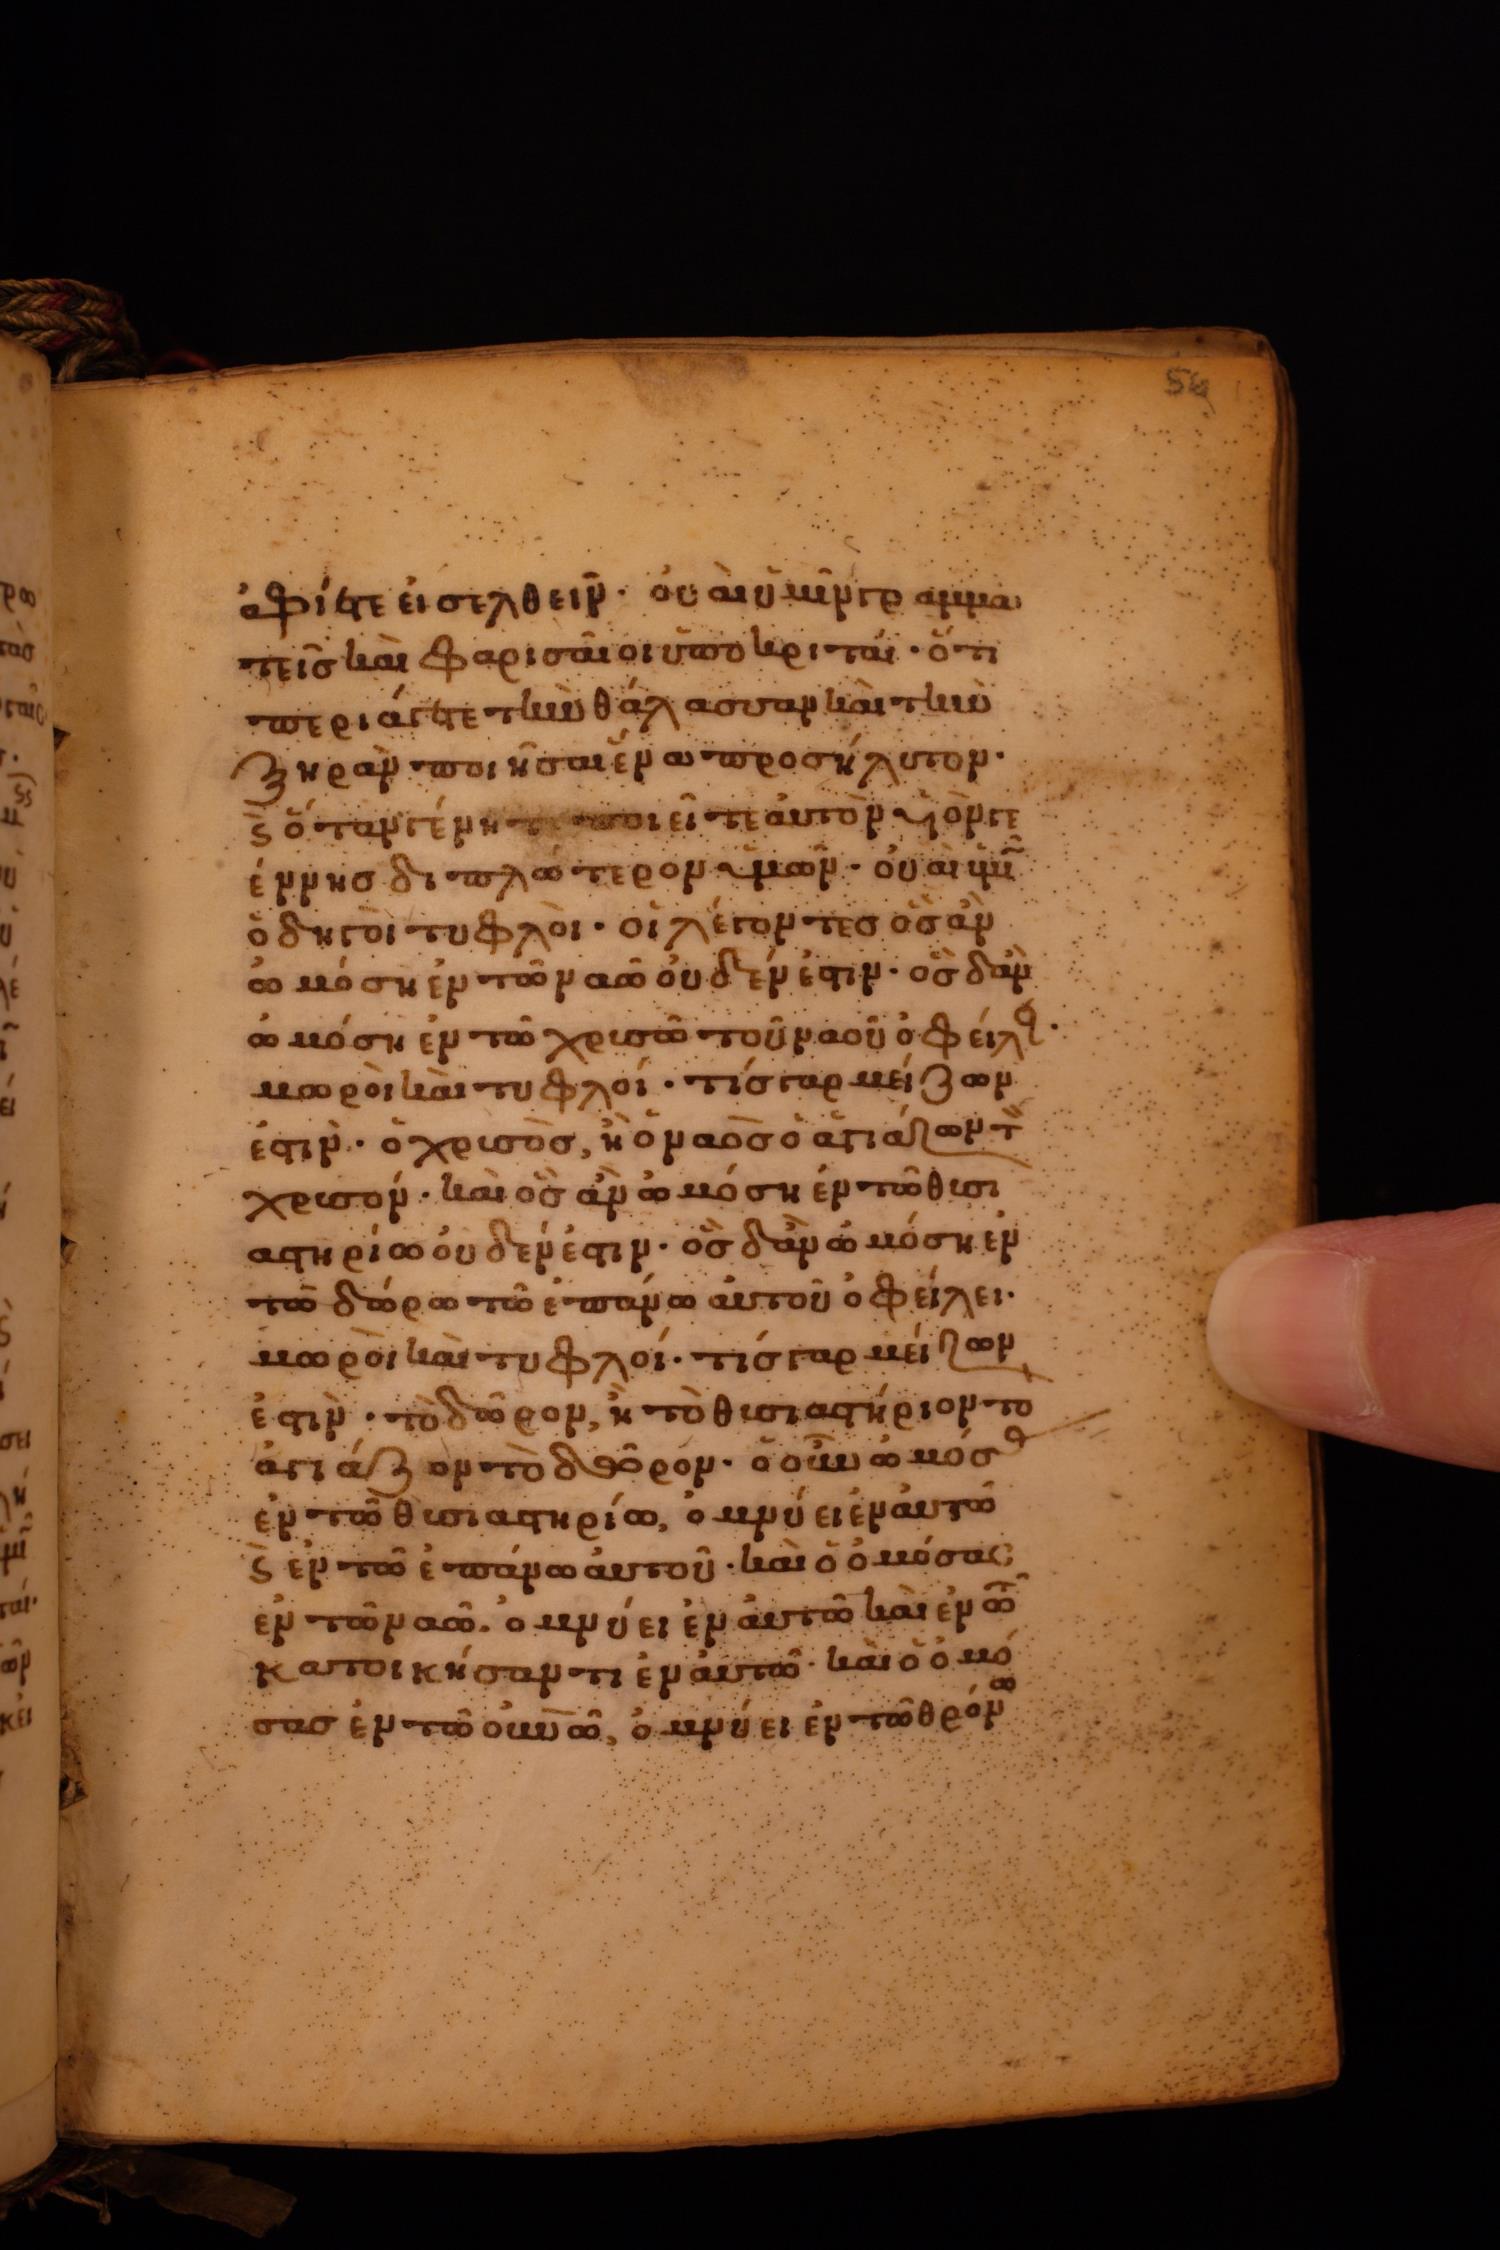 56
ἀφίετε εἰσελθεῖν· οὐαὶ ὑμῖν γραμμα
τεῖς καὶ φαρισαῖοι ὑποκριταί· ὅτι
περιάγετε τὴν θάλασσαν καὶ τὴν
ξηρὰν ποιῆσαι ἕνα προσήλυτον·
ϗ ὅταν γένηται ποιεῖτε αὐτὸν υἱὸν γε
έννης διπλώτερον ὑμῶν· οὐαὶ ὑμῖ
ὁδηγοὶ τυφλοὶ· οἱ λέγοντες ὃς ἂν
ὠμόση ἐν τῶ ναῶ οὐδέν ἐστιν· ὃς δἂν
ὠμόση ἐν τῶ χρυσῶ τοῦ ναοῦ ὀφείλει·
μωροὶ καὶ τυφλοί· τίς γαρ μείζων
ἐστιν· ὁ χρυσὸς, ἢ ὁ ναὸς ὁ ἁγιάζων τὸν
χρυσόν· καὶ ὃς ἂν ὠμόση ἐν τῶ θυσι
αστηρίω οὐδέν ἐστιν· ὃς δἂν ὠμόση ἐν
τῶ δώρω τῶ ἐπάνω αὐτοῦ ὀφείλει·
μωροὶ καὶ τυφλοί· τίς γαρ μείζων
ἐστιν· τὸ δῶρον, ἢ τὸ θυσιαστήριον το
ἁγιάζον τὸ δῶρον· ὁ οὖν ὠμόσ
ἐν τῶ θυσιαστηρίω, ὀμνύει ἐν αὐτῶ
ϗ ἐν τῶ ἐπάνω αὐτοῦ· καὶ ὁ ὀμόσας
ἐν τῶ ναῶ· ὀμνύει ἐν αὐτῶ καὶ ἐν τῶ
κατοικήσαντι ἐν αὐτῶ· καὶ ὁ ὀμό
σας ἐν τῶ οὐνῶ, ὀμνύει ἐν τῶ θρόνω